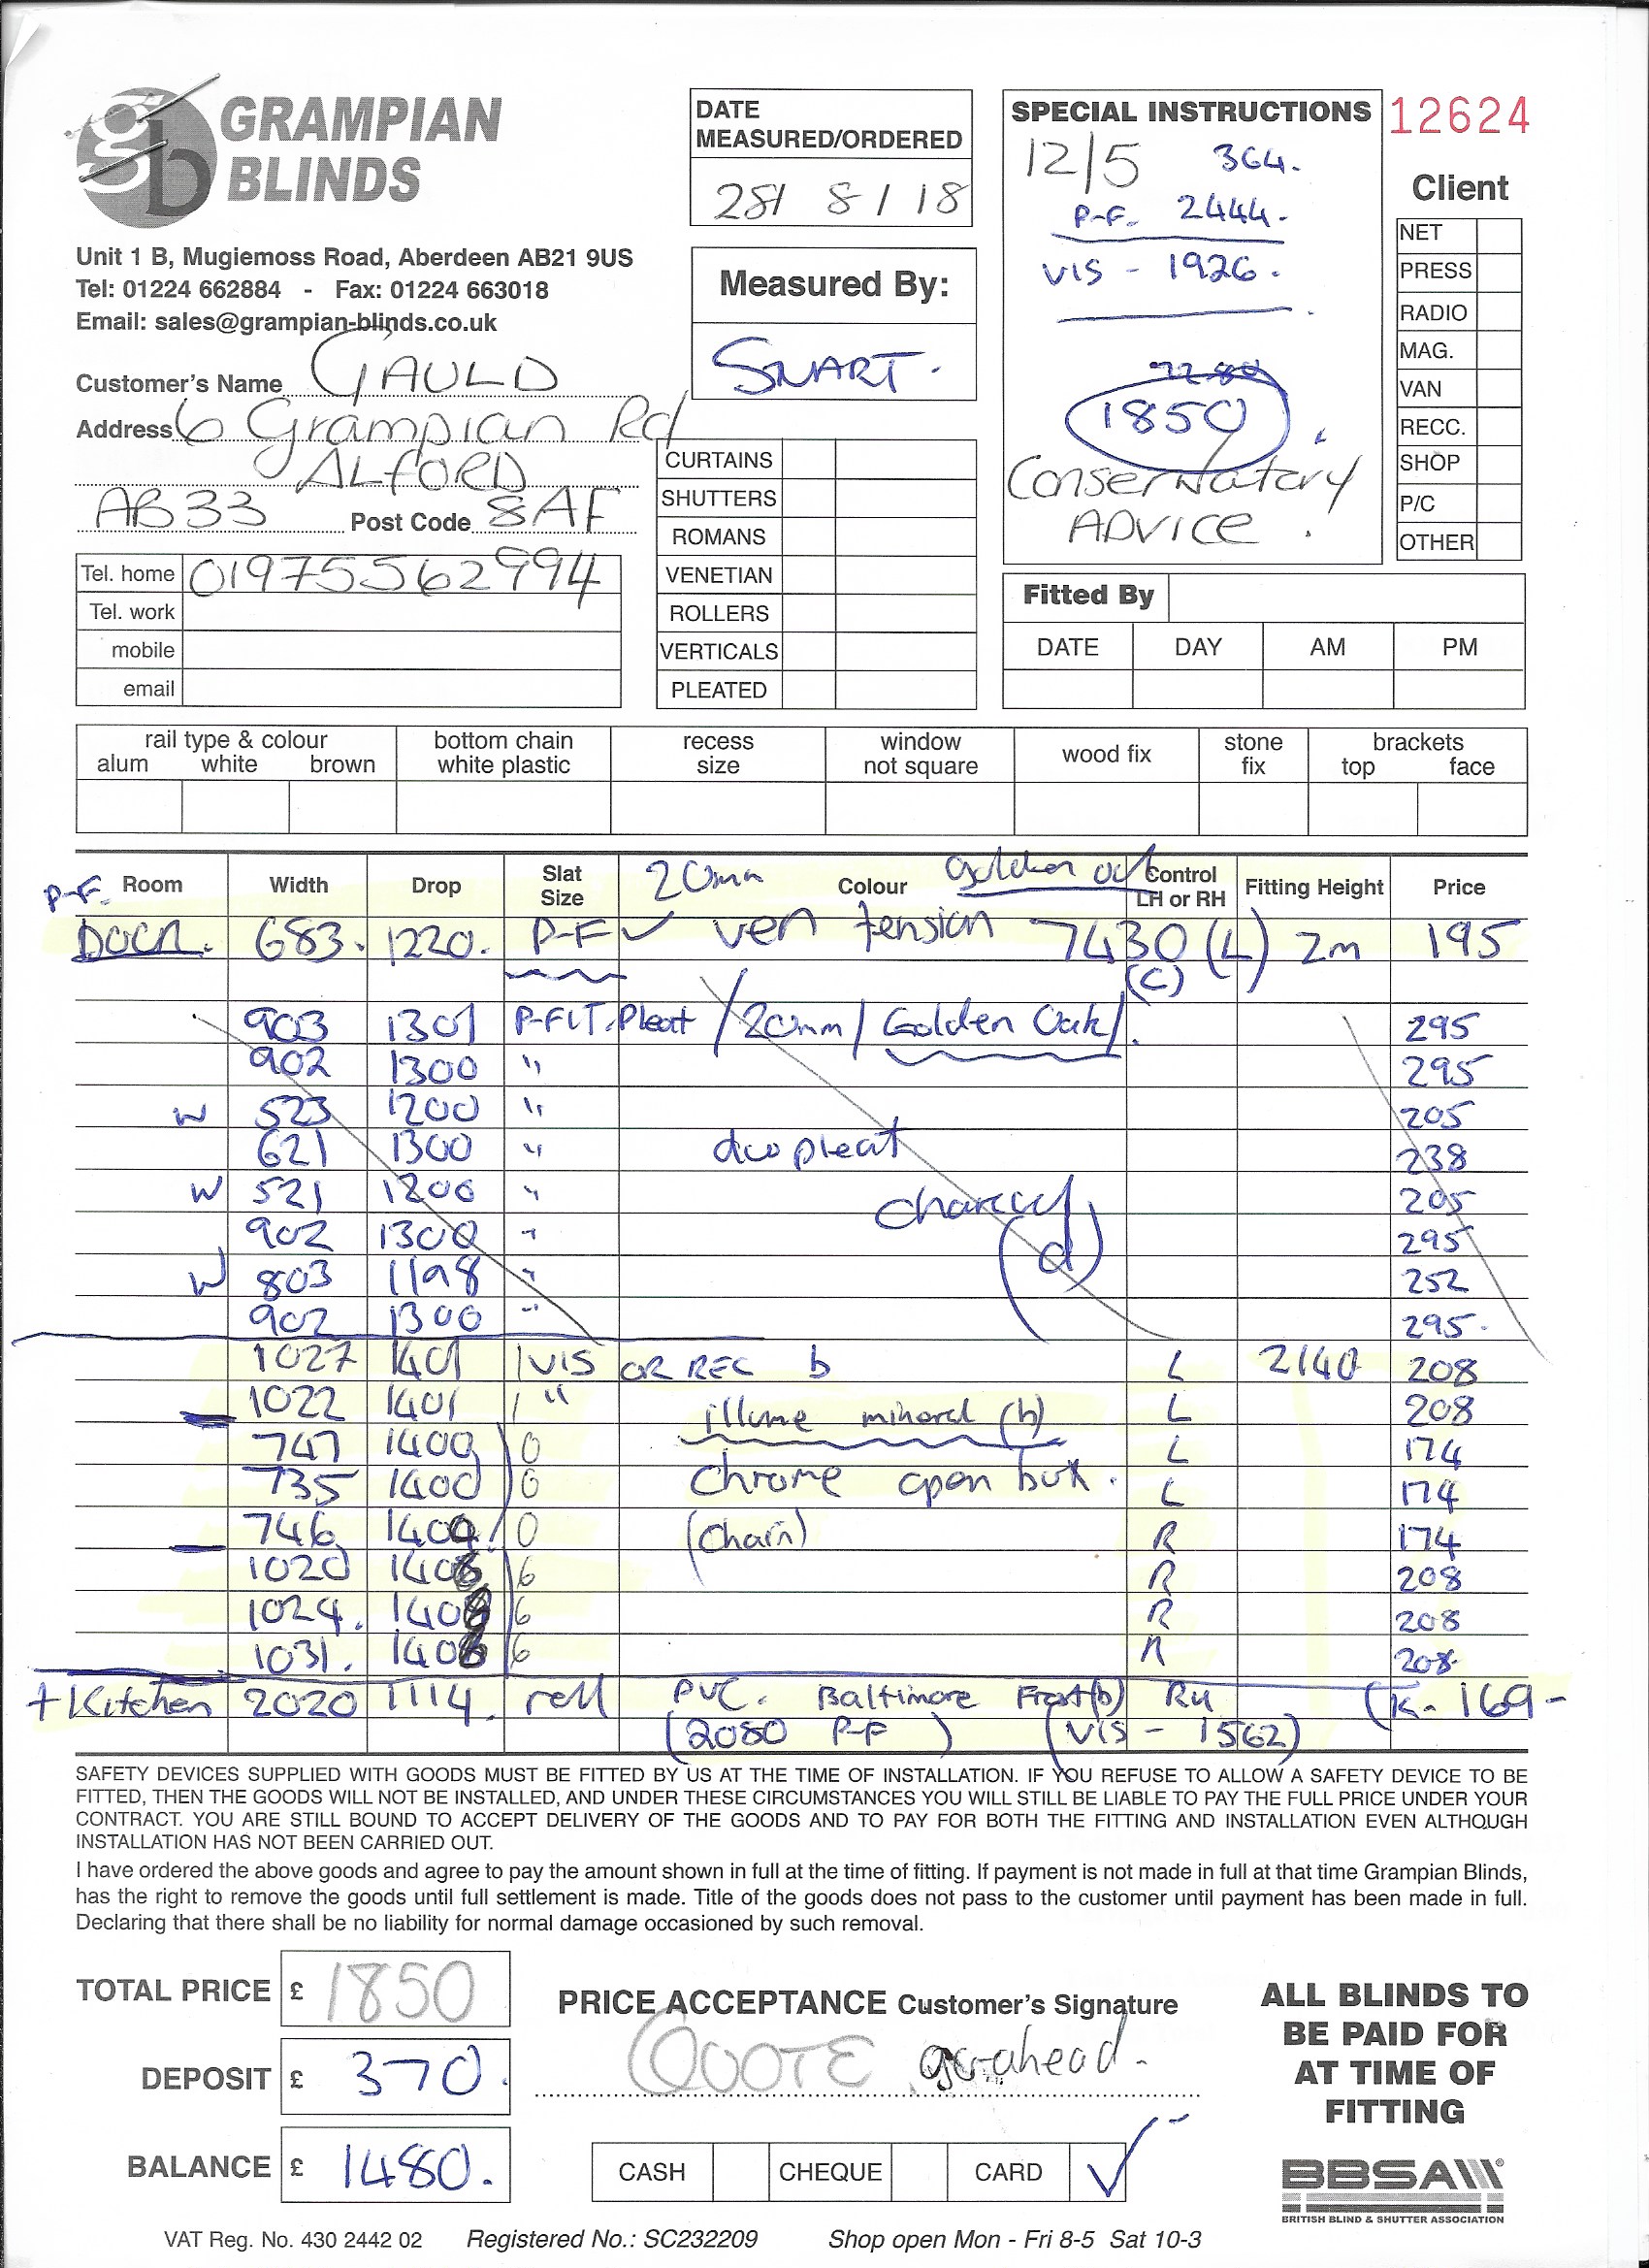 GRAMPIAN
BLINDS
Unit 1 B, Mugiemoss Road, Aberdeen AB21 9US
Tel: 01224 662884 - Fax: 01224 663018
Email: sales@grampian-blinds.co.uk
Customer's Name GAULD
Address 6 Grampian Rd
ALFORD
AB33 Post Code 8AF
Tel. home 01975562994
Tel. work
mobile
email
DATE
MEASURED/ORDERED
28/ 8/ 18
Measured By:
SMART.
CURTAINS
SHUTTERS
ROMANS
VENETIAN
ROLLERS
VERTICALS
PLEATED
SPECIAL INSTRUCTIONS
12/5 364.
P-F. 2444.
VIS - 1926.
1850
Conservatory
ADVICE.
12624
Client
NET
PRESS
RADIO
MAG.
VAN
RECC.
SHOP
P/C
OTHER
Fitted By
DATE DAY AM PM
rail type & colour bottom chain recess window wood fix stone brackets
alum white brown white plastic size not square fix top face
Room Width Drop Slat Size 20mm Colour golden oak Control LH or RH Fitting Height Price
P-F.
DOOR. 683. 1220. P-F ✓ ven tension 7430 (L) 2m 195
(C)
903 1301 P-FIT. Pleat / 20mm / Golden Oak/. 295
902 1300 " 295
W 523 1200 " 205
621 1300 " duo pleat 238
W 521 1200 " charcoal 205
902 1300 " (d) 295
W 803 1198 " 252
902 1300 " 295.
1027 1401 1 VIS OR REC b L 2140 208
1022 1401 1 " illume mineral (b) L 208
747 1400 0 L 174
735 1400 0 Chrome open box. L 174
746 1400 0 (Chain) R 174
1020 140 6 R 208
1024. 140 6 R 208
1031. 140 6 R 208.
+ Kitchen 2020 1114. roll PVC. Baltimore Frost (b) RH (K. 169-
(2080 P-F) (VIS - 1562)
SAFETY DEVICES SUPPLIED WITH GOODS MUST BE FITTED BY US AT THE TIME OF INSTALLATION. IF YOU REFUSE TO ALLOW A SAFETY DEVICE TO BE
FITTED, THEN THE GOODS WILL NOT BE INSTALLED, AND UNDER THESE CIRCUMSTANCES YOU WILL STILL BE LIABLE TO PAY THE FULL PRICE UNDER YOUR
CONTRACT. YOU ARE STILL BOUND TO ACCEPT DELIVERY OF THE GOODS AND TO PAY FOR BOTH THE FITTING AND INSTALLATION EVEN ALTHOUGH
INSTALLATION HAS NOT BEEN CARRIED OUT.
I have ordered the above goods and agree to pay the amount shown in full at the time of fitting. If payment is not made in full at that time Grampian Blinds,
has the right to remove the goods until full settlement is made. Title of the goods does not pass to the customer until payment has been made in full.
Declaring that there shall be no liability for normal damage occasioned by such removal.
TOTAL PRICE £ 1850
DEPOSIT £ 370.
BALANCE £ 1480.
PRICE ACCEPTANCE Customer's Signature
QUOTE go-ahead.
CASH CHEQUE CARD ✓
ALL BLINDS TO
BE PAID FOR
AT TIME OF
FITTING
BBSA
BRITISH BLIND & SHUTTER ASSOCIATION
VAT Reg. No. 430 2442 02 Registered No.: SC232209 Shop open Mon - Fri 8-5 Sat 10-3